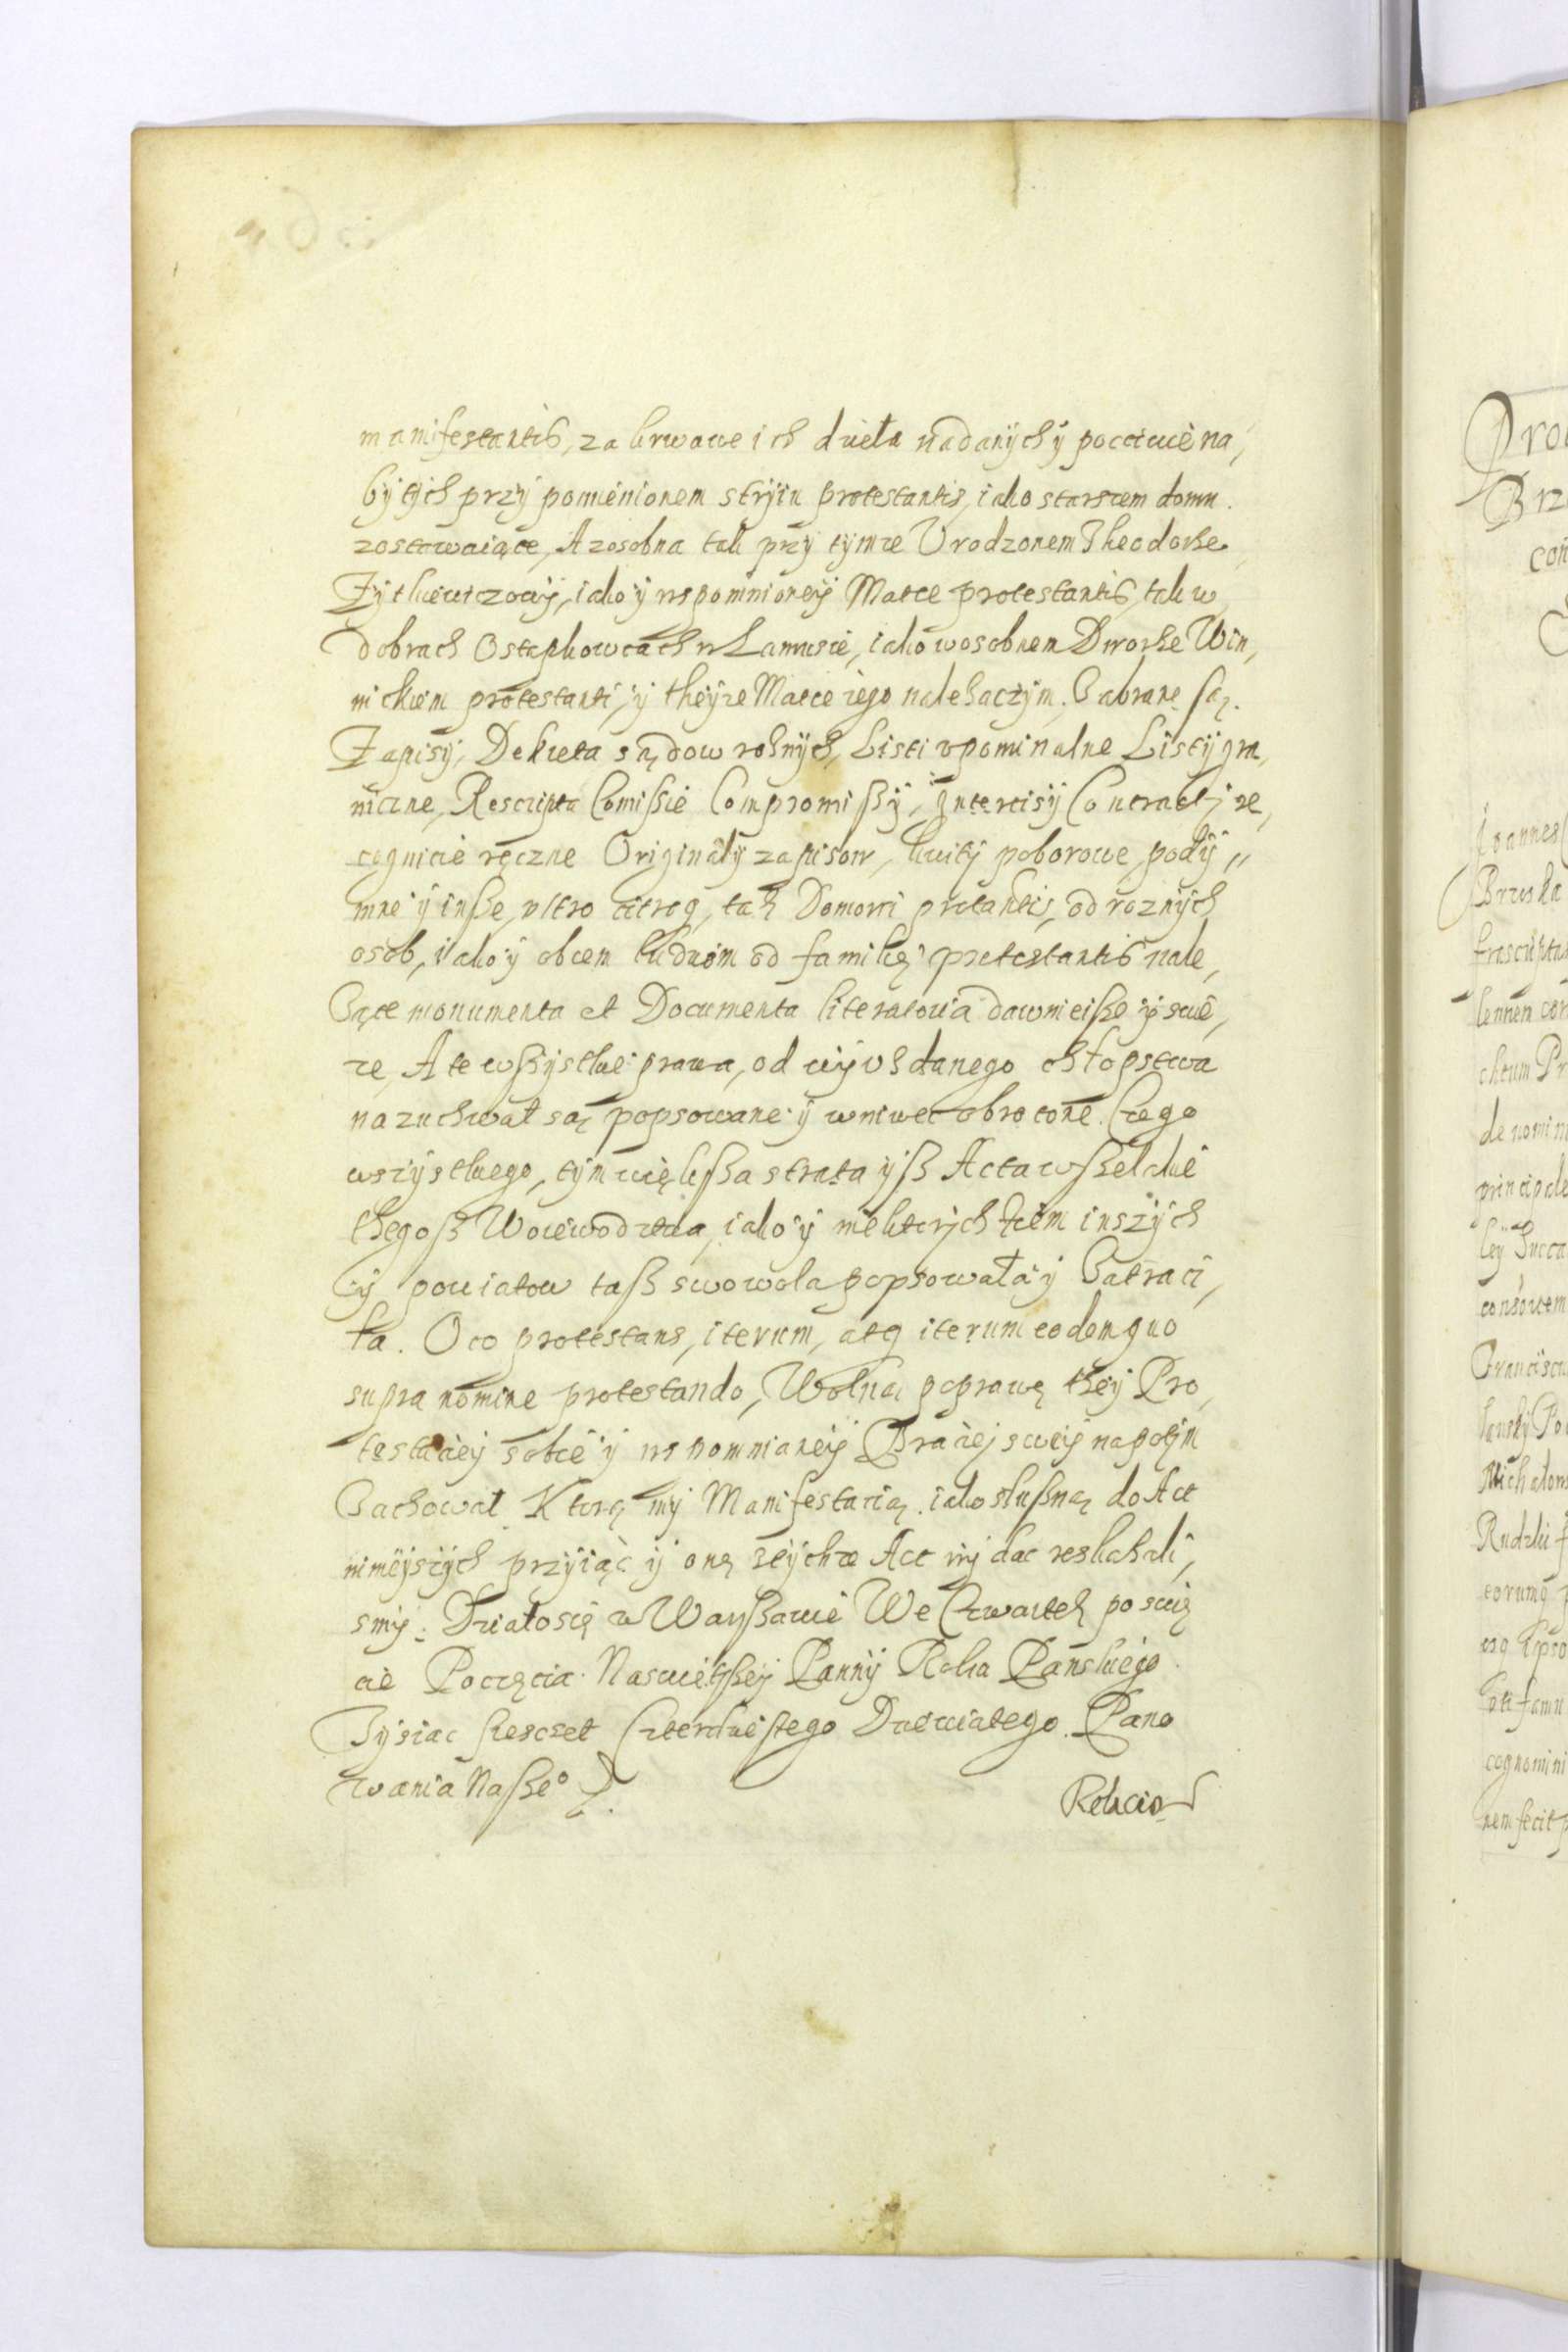 manifestantis, za krwawe ich dzieła nadanych y poczciwie na,
bytych przy pomienionem stryiu protestantis, iako starszem domu.
zostawaiące, A zosobna tak przy tymze Vrodzonem Theodorze
Zytkiewiczowy, iako y wspomnioney Matce protestantis, tak w
dobrach Ostapkowcach w Lamusie, iako w osobnem Dworze Win,
nickiem protestanti, y theyze Matce iego należaczym. Zabrane są.
Zapisy, Dekreta sądow rożnych, Listi vpominalne Listy gra,
niczne, Rescripta Comissie Compromissy, Intercisy Contracty re,
cognicie ręczne Originały zapisow, kwity poborowe, pody„
mne y insze vltro citroq, tak Domowi prótantis, od roznych
osob, iako y obcem ludziom od familię protestantis nale,
żące monumenta et Documenta literatoria dawnieisze y swie,
ze, A te wszystkie prawa, od wyvzdanego chłopstwa
na zuchwał są popsowane y wniwec obrocone. Czego
wszystkiego, tym większa strata ysz Acta wszelakie
thegosz Woiewodztwa, iako y niektorych ziem inszych
y powiatow tasz swowola popsowała y Zatraci,
ła. O co protestans, iterum, atq iterum eodem quo
supra nomine protestando, Wolną poprawę they Pro,
testaciey sobie y wspomnianey Braciej swey na potym
Zachował. Ktorą my Manifestacią iako słuszną do Act
ninieyszych przyiąć y oną zeychze Act wydac reskazali,
smy. Działosię w Warszawie We Czwartek po swię
cie Poczęcia Naswiętszey Panny Roku Panskiego
Tysiac szescset Czterdziestego Dziewiatego. Pano
wania Naszeº
Relacio
Joannes
Brzoska
denomin
principale
consortem
Franciscu
cognomini
nem fecit